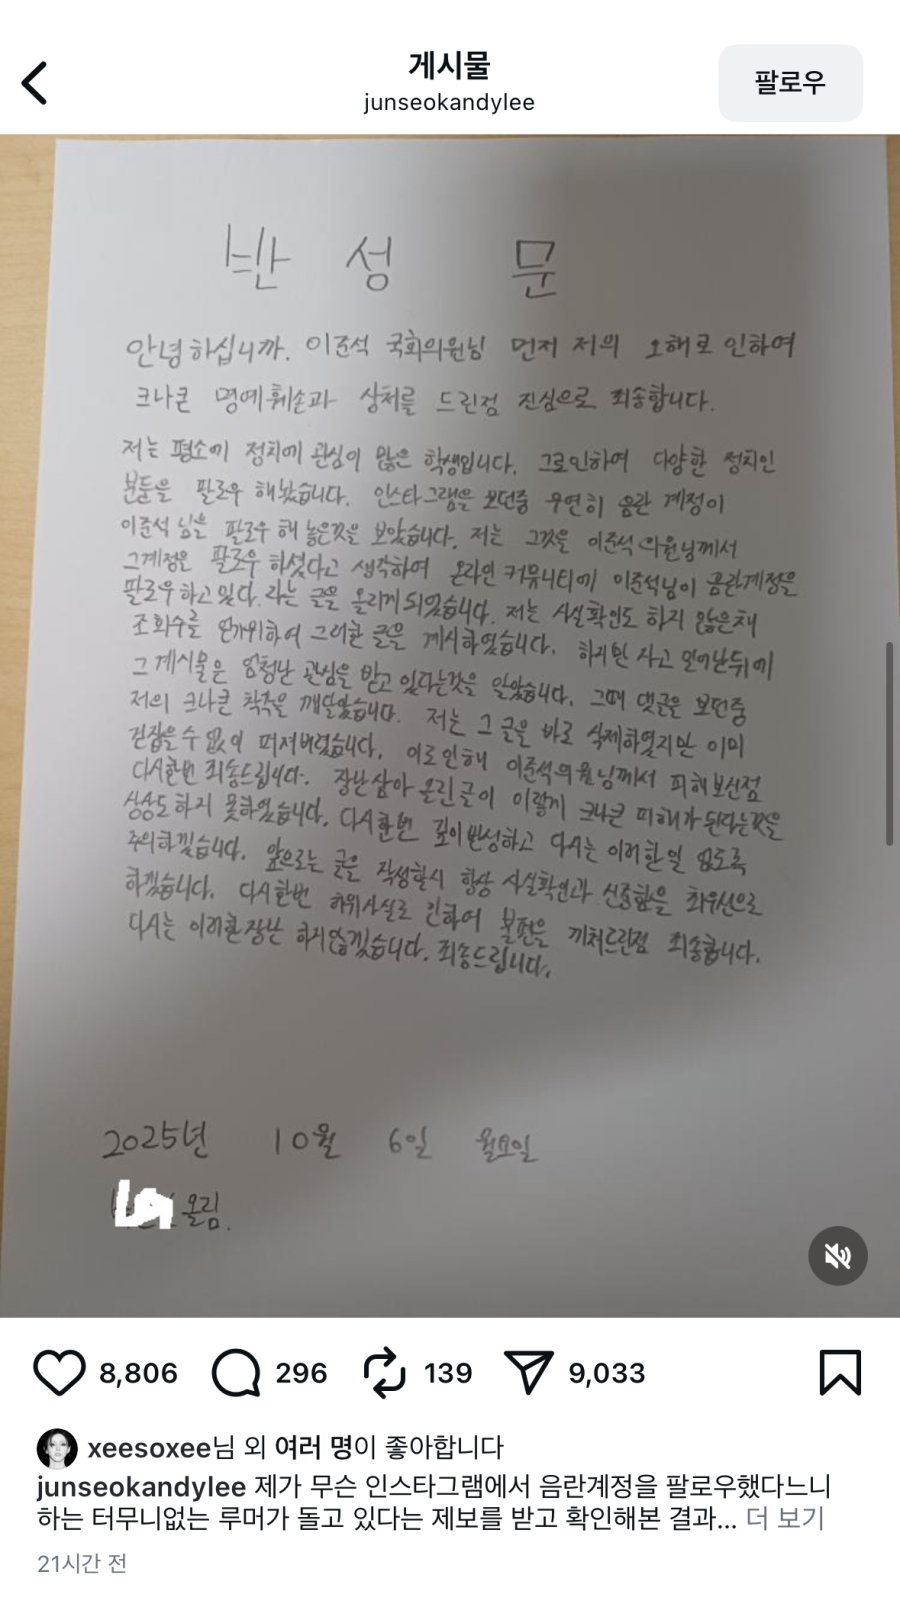 게시물
junseokandylee
팔로우
반 성 문
안녕하십니까. 이준석 국회의원님 먼저 저의 오해로 인하여
크나큰 명예훼손과 상처를 드린점 진심으로 죄송합니다.
저는 평소에 정치에 관심이 많은 학생입니다. 그로인하여 다양한 정치인
분들을 팔로우 해놨습니다. 인스타그램을 보던중 우연히 음란 계정이
이준석 님을 팔로우 해 놓은것을 보았습니다. 저는 그것을 이준석 의원님께서
그계정은 팔로우 하셨다고 생각하여 온라인 커뮤니티에 이준석님이 음란계정을
팔로우하고 있다. 라는 글을 올리게 되었습니다. 저는 사실확인도 하지 않은채
조회수를 위하여 그러한 글을 게시하였습니다. 하지만 자고 일어난뒤에
그 게시물은 엄청난 관심을 받고 있다는것을 알았습니다. 그때 댓글을 보던중
저의 크나큰 착각을 깨달았습니다. 저는 그 글을 바로 삭제하였지만 이미
걷잡을수 없이 퍼져버렸습니다. 이로인해 이준석의원님께서 피해보신점
다시한번 죄송드립니다. 장난삼아 올린글이 이렇게 크나큰 피해가 된다는것을
상상도 하지 못하였습니다. 다시한번 깊이반성하고 다시는 이러한일 없도록
주의하겠습니다. 앞으로는 글을 작성할시 항상 사실확인과 신중함을 최우선으로
하겠습니다. 다시한번 허위사실로 인하여 불편을 끼쳐드린점 죄송합니다.
다시는 이러한장난 하지않겠습니다. 죄송드립니다.
2025년 10월 6일 월요일
올림.
8,806 296 139 9,033
xeesoxee님 외 여러 명이 좋아합니다
junseokandylee 제가 무슨 인스타그램에서 음란계정을 팔로우했다느니
하는 터무니없는 루머가 돌고 있다는 제보를 받고 확인해본 결과... 더 보기
21시간 전